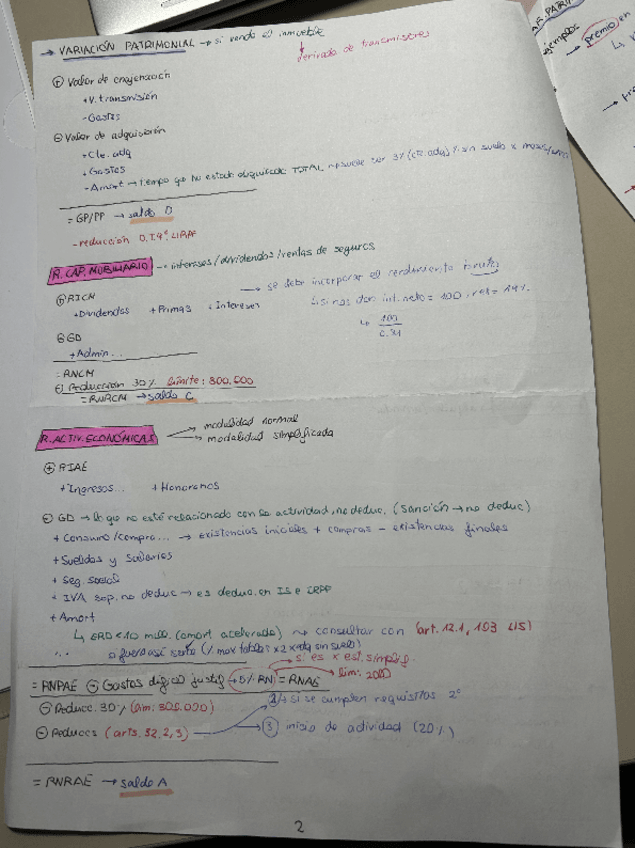 → VARIACIÓN PATRIMONIAL → si vendo el inmueble
derivado de transmisiones
⊕ Valor de enajenación
+ V. transmisión
- Gastos
⊖ Valor de adquisición
+ Cte. adq
+ Gastos
- Amort → tiempo que no estado alquilado: TOTAL → suele ser 3% (cte. adq) % sin suelo x meses/
= GP/PP → saldo D
- reducción D.T.9ª LIRPF
R. CAP. MOBILIARIO → intereses/dividendos/rentas de seguros
→ se debe incorporar el rendimiento bruto
⊕ RICM
+ Dividendos + Primas + Intereses
↓ si nos dan int. neto = 100, ret = 19%
↳ 100
0,81
⊖ GD
+ Admin...
= RNCM
⊖ Reducción 30% límite: 300.000
= RNRCM → saldo C
R. ACTIV. ECONÓMICAS
→ modalidad normal
→ modalidad simplificada
⊕ RIAE
+ Ingresos... + Honorarios
⊖ GD → lo que no esté relacionado con la actividad, no deduc. (sanción → no deduc)
+ Consumo/compra... → existencias iniciales + compras - existencias finales
+ Sueldos y Salarios
+ Seg. social
+ IVA sop. no deduc → es deduc. en IS e IRPF
+ Amort
↳ ERD < 10 mill. (amort. acelerada) → consultar con (art. 12.1, 103 LIS)
... o fuera así sería (% max tablas x 2 x adq sin suelo)
→ si es x est. simplif.
= RNPAE ⊖ Gastos difícil justif → 5% RN = RNAE
lim: 2000
⊖ Reducc. 30% (lim: 300.000)
→ si se cumplen requisitos 2º
⊖ Reduccs (arts. 32, 2, 3)
→ ③ inicio de actividad (20%)
= RNRAE → saldo A
2
ejemplos
→ premio en